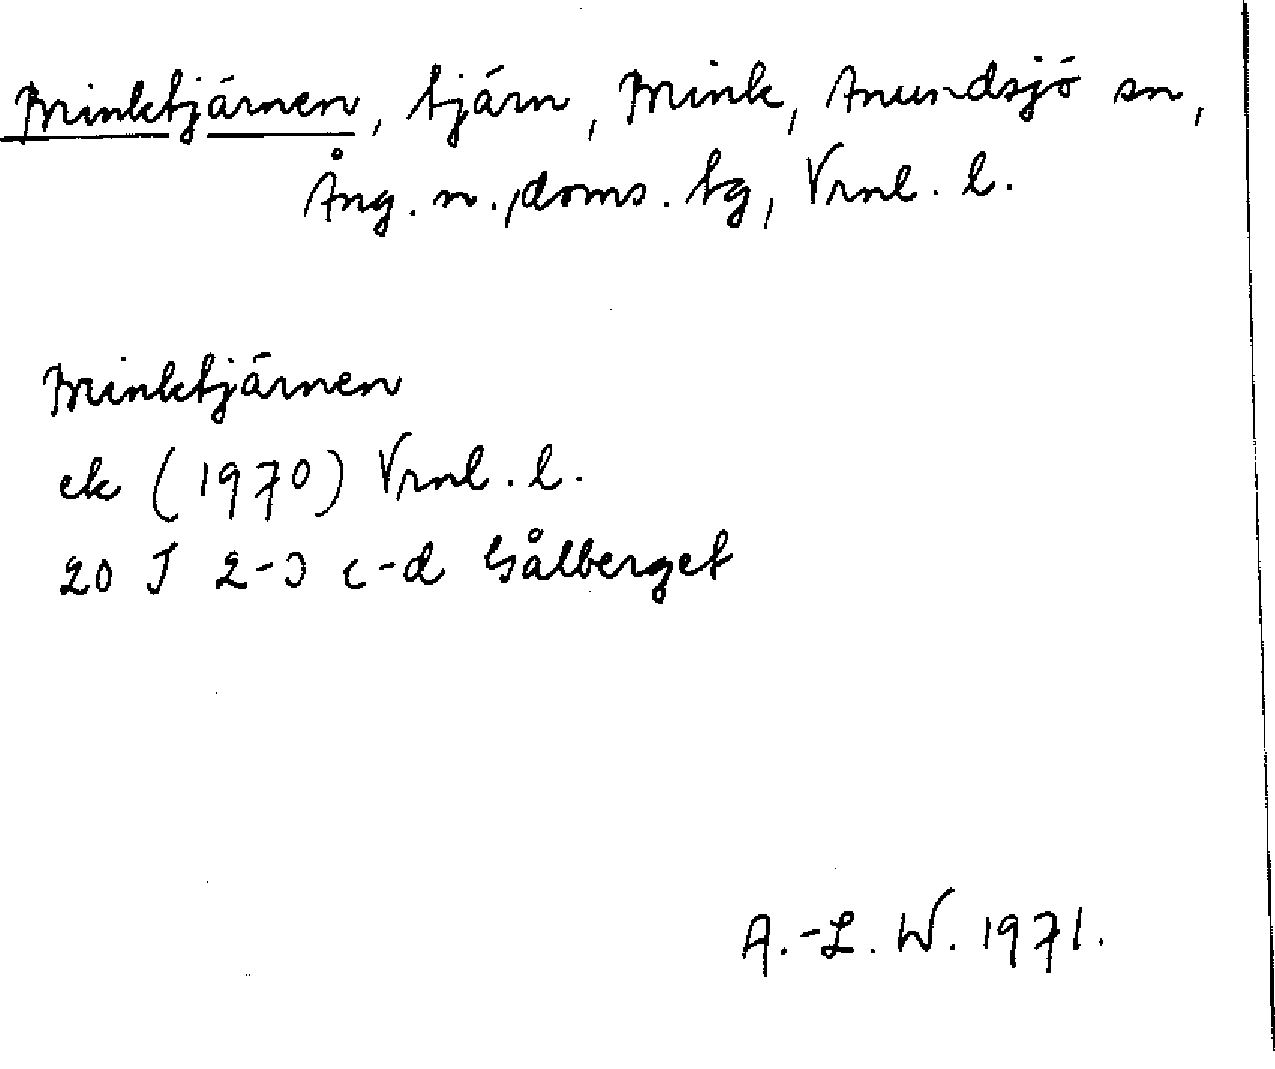 Brinktjärnen, tjärn, Brink, Anundsjö sn,
Ång. n., doms. tg, Vrnl. l.
Brinktjärnen
ek (1970) Vrnl. l.
20 J 2-3 c-d Gålberget
A.-L. W. 1971.